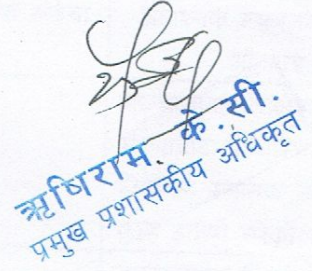 ऋषिराम. के.सी.
प्रमुख प्रशासकीय अधिकृत